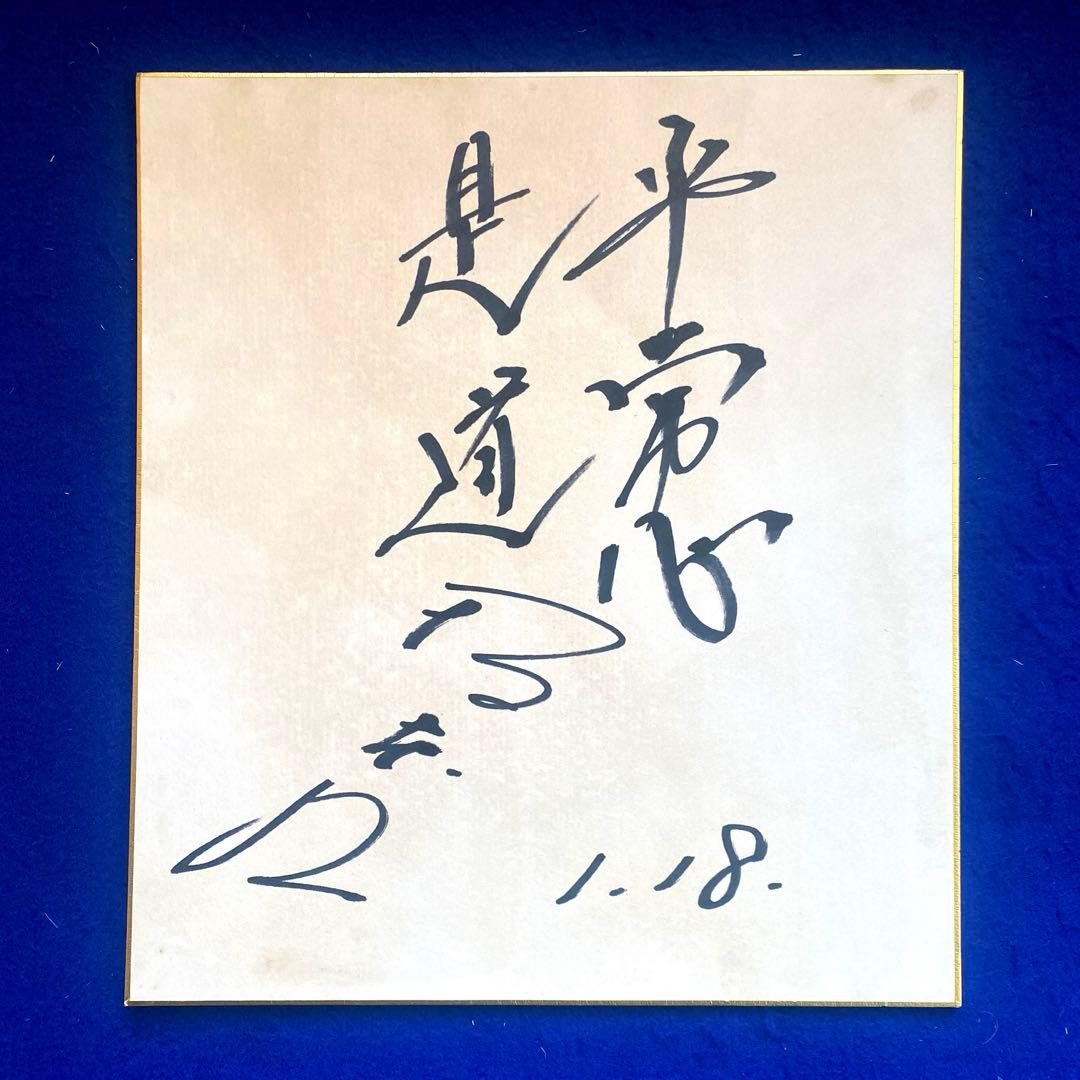 平常心
是道
1.18.